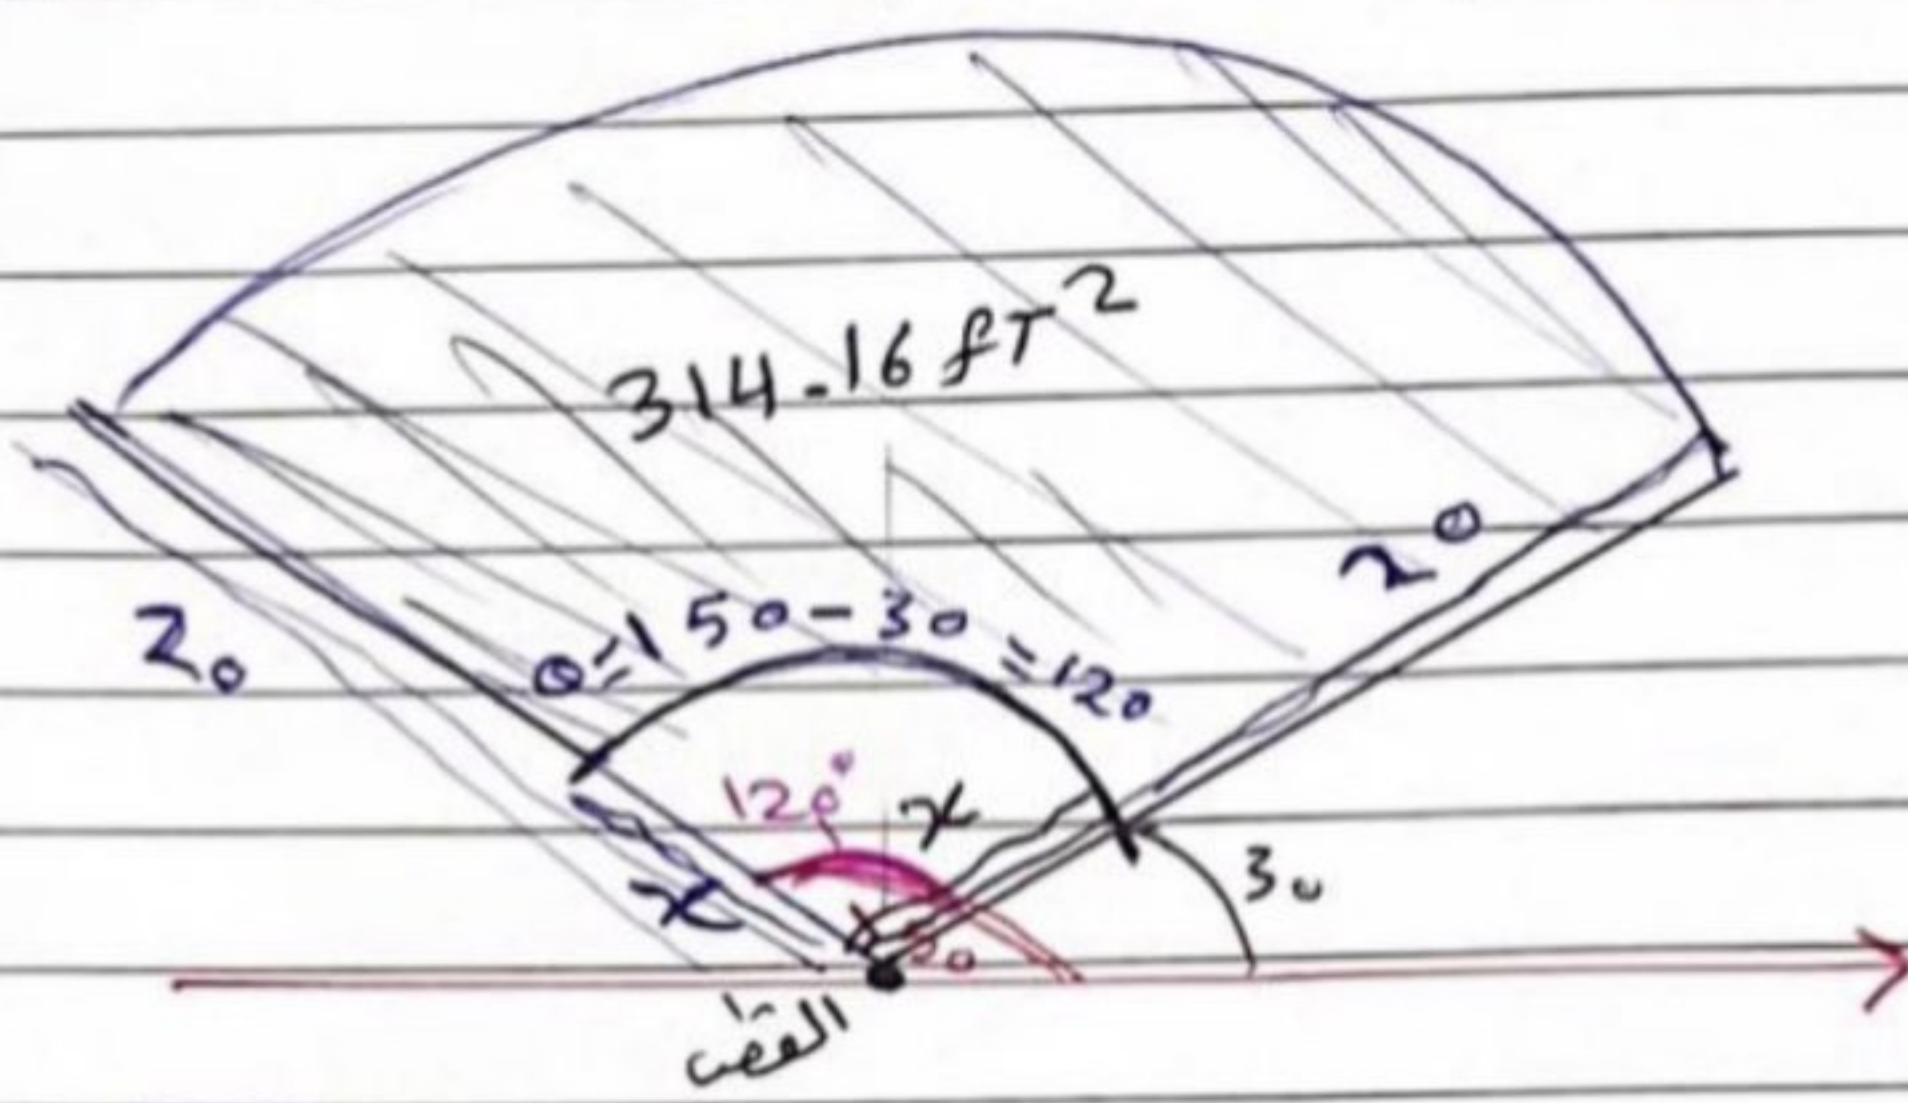 314.16 fT²
20
20
θ = 150 - 30 = 120
120°
x
x
30
القطب